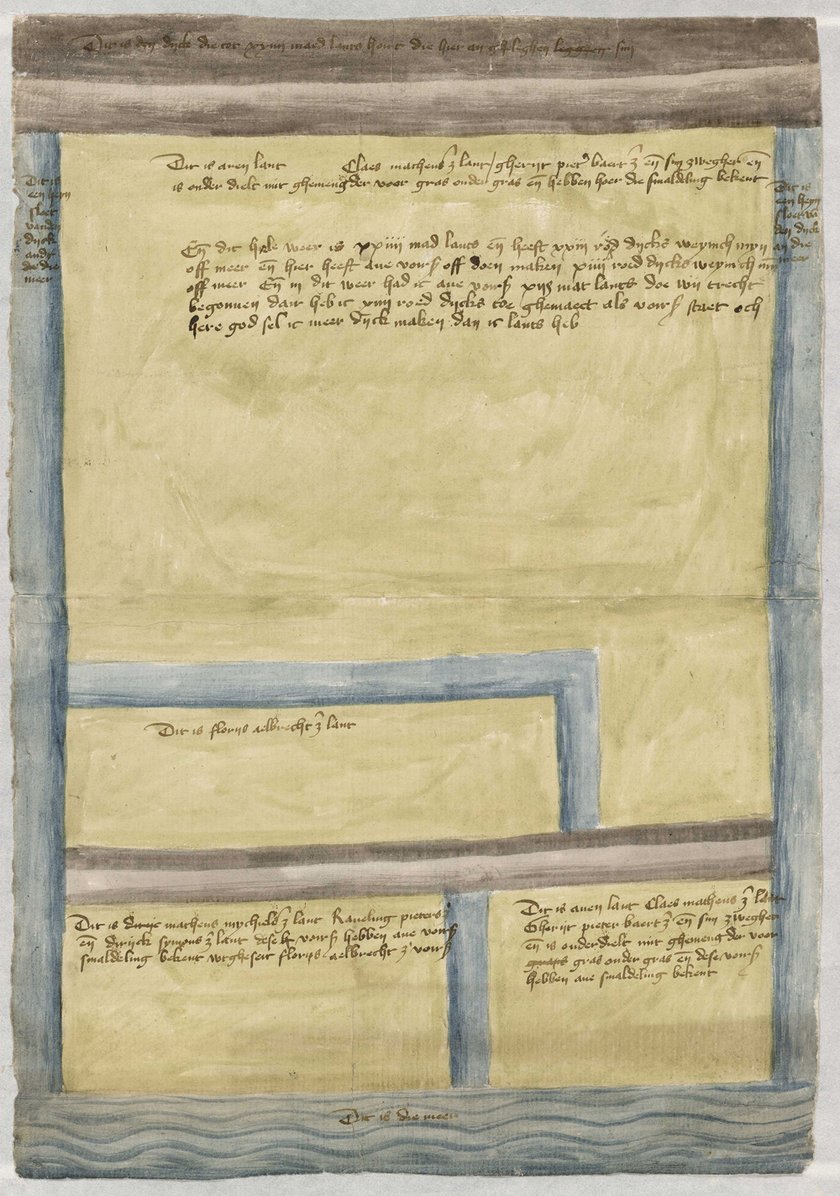 Dit is den dyck die tot xxiiii mad lants hoirt die hier an gheleghen leggen sijn
Dit is
een heyn
sloet
vanden
dijck
an
die
meer
Dit is aven lant Claes matheus z lant / gherijt piet baert z en sijn zwegher en
is onder dielt mit ghemengder voor gras onder gras en hebben hoer die smaldeling bekent
Dit is
een heyn
sloet van
den dyck
an die
meer
En dit hele weer is xxiiii mad lants en heeft xxiii rod dijcks weynich myn
off meer en hier heeft ave vors off doen maken xiiii roed dijcks weynich min
off meer En in dit weer had ic ave vors mat lants doe wij trecht
begonnen dair heb ic xiiii roed dijcks toe ghemaect als vors staet och
here god sel ic meer dijck maken dan ic lants heb
Dit is florijs aelbrecht z lant
Dit is matheus mychiels z lant Raveling pietersz
en dirijck symons z lant dese vors hebben ave vors
smaldeling bekent wtgheseit florijs aelbrecht z vors
Dit is aven lant Claes matheus z lant
Gherijt pieter baert z en sijn zwegher
en is onderdielt mit ghemengder voor
gras onder gras en dese vors
hebben ave smaldeling bekent
Dit is die meer